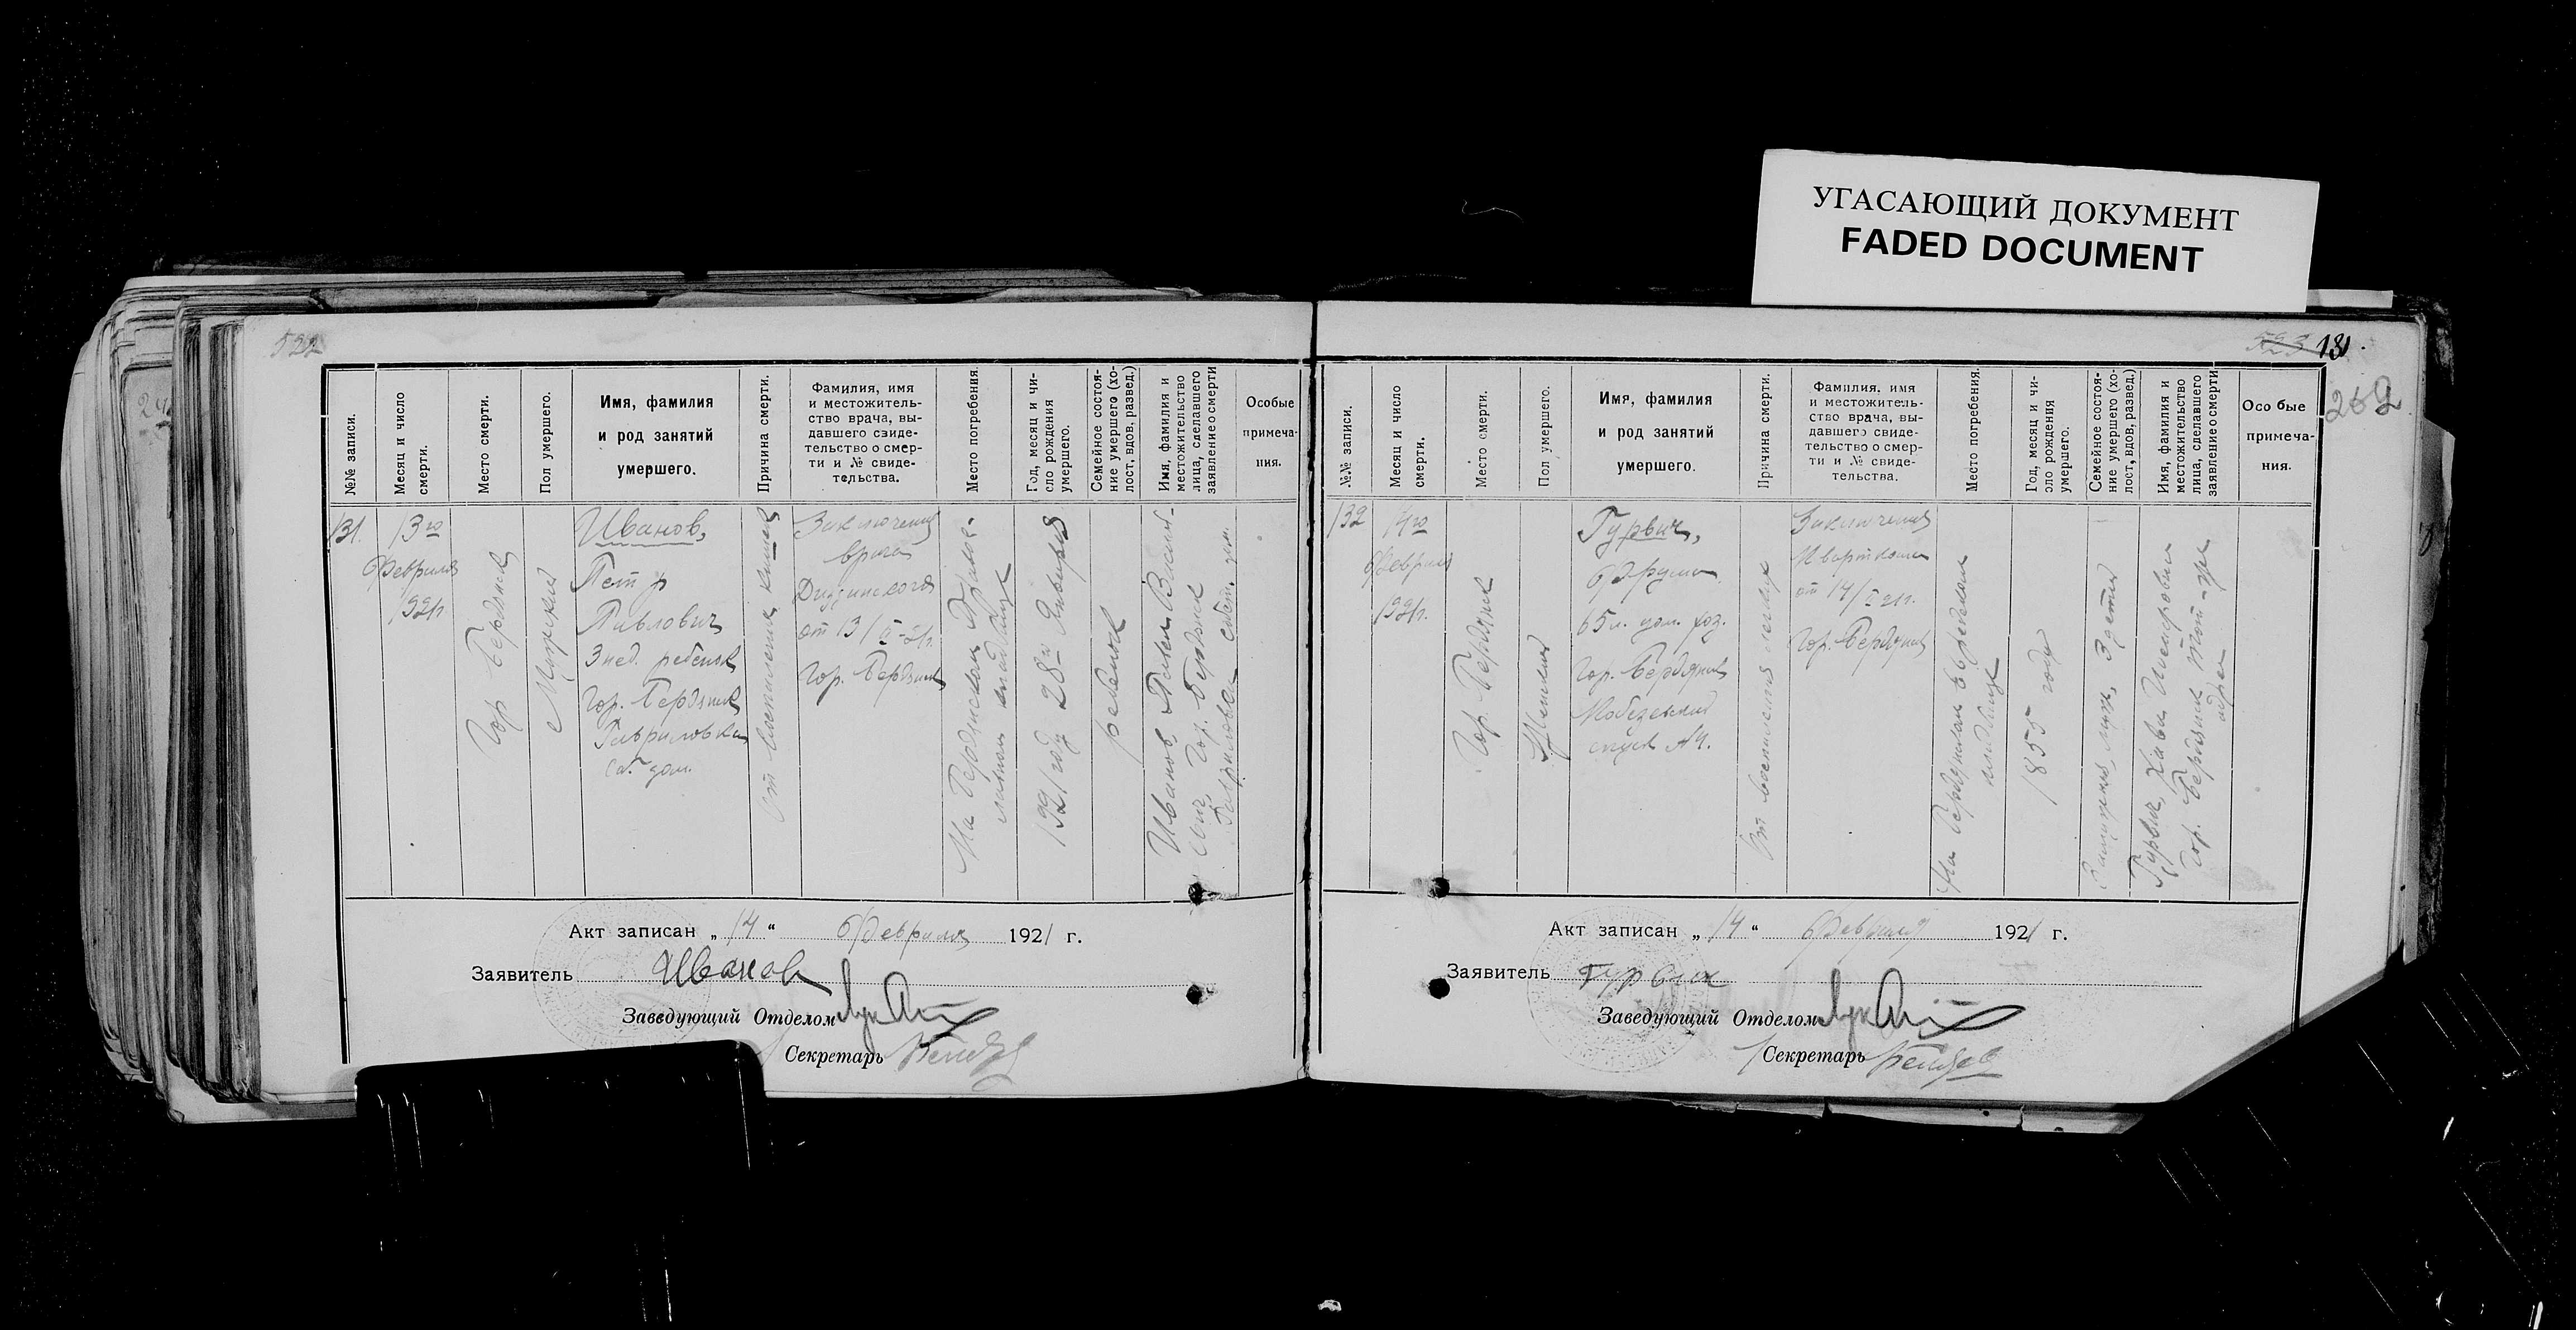 УГАСАЮЩИЙ ДОКУМЕНТ
FADED DOCUMENT
522
№№ записи.
Месяц и число
смерти.
Место смерти.
Пол умершего.
Имя, фамилия
и род занятий
умершего.
Причина смерти.
Фамилия, имя
и местожитель-
ство врача, вы-
давшего свиде-
тельство о смер-
ти и № свиде-
тельства.
Место погребения.
Год, месяц и чи-
сло рождения
умершего.
Семейное состоя-
ние умершего (хо-
лост, вдов, развед.)
Имя, фамилия и
местожительство
лица, сделавшего
заявление о смерти
Особые
примеча-
ния.
131.
13го
Февраля
1921г.
Гор. Бердянск
Мужской
Иванов,
Петр
Павлович
3 нед. ребенок
Гор. Бердянск
Гавриловка
от воспаления кишек
Заключение
врача
от 13/II-21г.
Гор. Бердянск
На Бердянском Правос-
лавном кладбище
1921 году 28го Января
ребенок
Иванов Павел Василь-
евич, Гор. Бердянск
Гавриловка собст. дом.
Акт записан „14“ Февраля 1921 г.
Заявитель Иванов
Заведующий Отделом
Секретарь
523 131.
262
№№ записи.
Месяц и число
смерти.
Место смерти.
Пол умершего.
Имя, фамилия
и род занятий
умершего.
Причина смерти.
Фамилия, имя
и местожитель-
ство врача, вы-
давшего свиде-
тельство о смер-
ти и № свиде-
тельства.
Место погребения.
Год, месяц и чи-
сло рождения
умершего.
Семейное состоя-
ние умершего (хо-
лост, вдов, развед.)
Имя, фамилия и
местожительство
лица, сделавшего
заявление о смерти
Особые
примеча-
ния.
132
14го
Февраля
1921г.
Гор. Бердянск
Женский
Гурвич,
Фрума
65 л. дом. хоз.
Гор. Бердянск
спуск №4.
От воспаления легких
Заключение
от 14/II 21г.
Гор. Бердянск
На Бердянском Еврейском
кладбище
1855 году
Замужняя, муж, 3 детей
Гурвич, Хава
Гор. Бердянск тот-же
адрес
Акт записан „14“ Февраля 1921 г.
Заявитель Гурвич
Заведующий Отделом
Секретарь